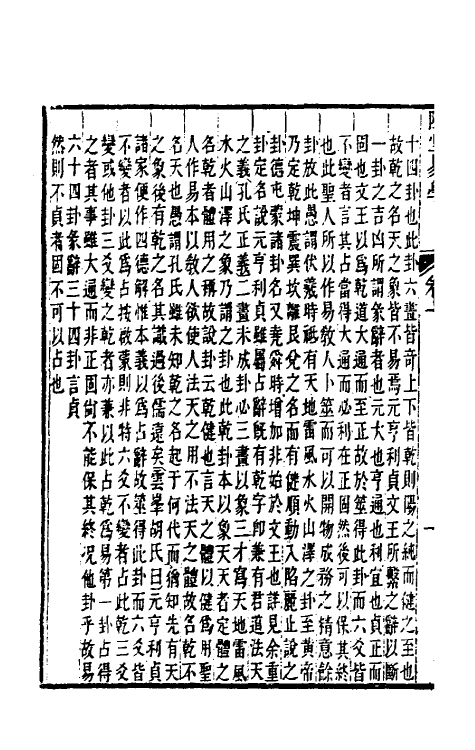 十四卦也此卦六畫皆奇上下皆乾則陽之純而健之至也
故乾之名天之象皆不易焉元亨利貞文王所繫之辭以斷
一卦之吉凶所謂彖辭者也元大也亨通也利宜也貞正而
固也文王以爲乾道大通而至正故於筮得此卦而六爻皆
不變者言其占當得大通而必利在正固然後可以保其終
也此聖人所以作易敎人卜筮而可以開物成務之精意餘
卦放此愚謂伏羲時祗有天地雷風水火山澤之卦至黃帝
乃定乾坤震巽坎離艮兌之名而有健順動入陷麗止說之
卦德屯蒙諸卦名又堯舜時增加非始於文王也詳見余重
卦定名說元亨利貞雖屬占辭旣有乾字卽兼有君道法天
之義孔氏正義二畫未成卦必三畫以象三才寫天地雷風
水火山澤之象乃謂之卦也此乾卦本以象天天者定體之
名乾者體用之稱故說卦云乾健也言天之體以健爲用聖
人作易本以敎人欲使人法天之用不法天之體故名乾不
名天也愚謂孔氏雖未知乾之名起于何代而猶知先有天
之象後有乾之名其識過後儒遠矣雲峯胡氏曰元亨利貞
諸家便作四德解惟本義以爲占辭故筮得此卦而六爻皆
不變者以此爲占按啟蒙則非特六爻不變者占此乾三爻
變或他卦三爻變之乾者亦兼以此占乾爲易第一卦占得
之者其事雖大通而非正固尙不能保其終况他卦乎故易
六十四卦彖辭三十四卦言貞
然則不貞者固不可以占也